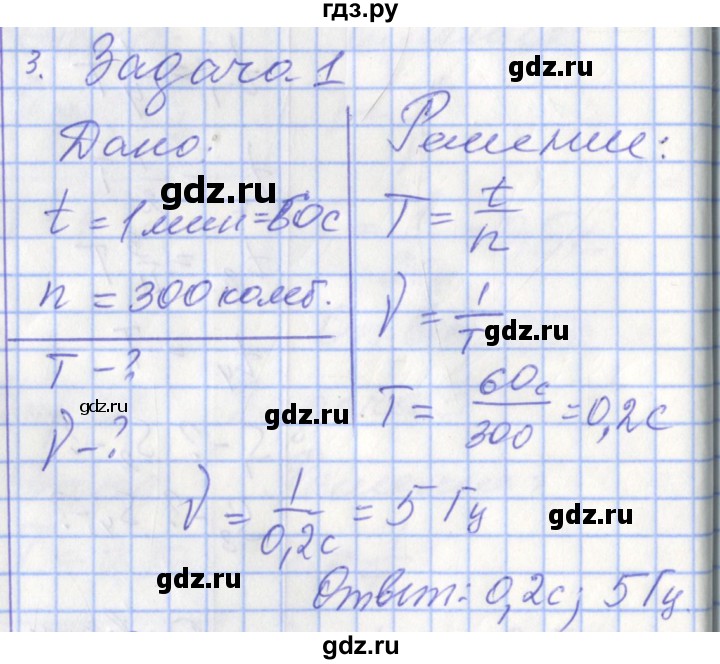 гдз.ру
3. Задача 1
Дано:
t = 1 мин = 60с
n = 300 колеб.
T - ?
ν - ?
Решение:
T = t/n
ν = 1/T
T = 60с/300 = 0,2с
ν = 1/0,2с = 5 Гц
Ответ: 0,2с; 5 Гц.
gdz.ru
gdz.ru
gdz.ru
gdz.ru
gdz.ru
gdz.ru
gdz.ru